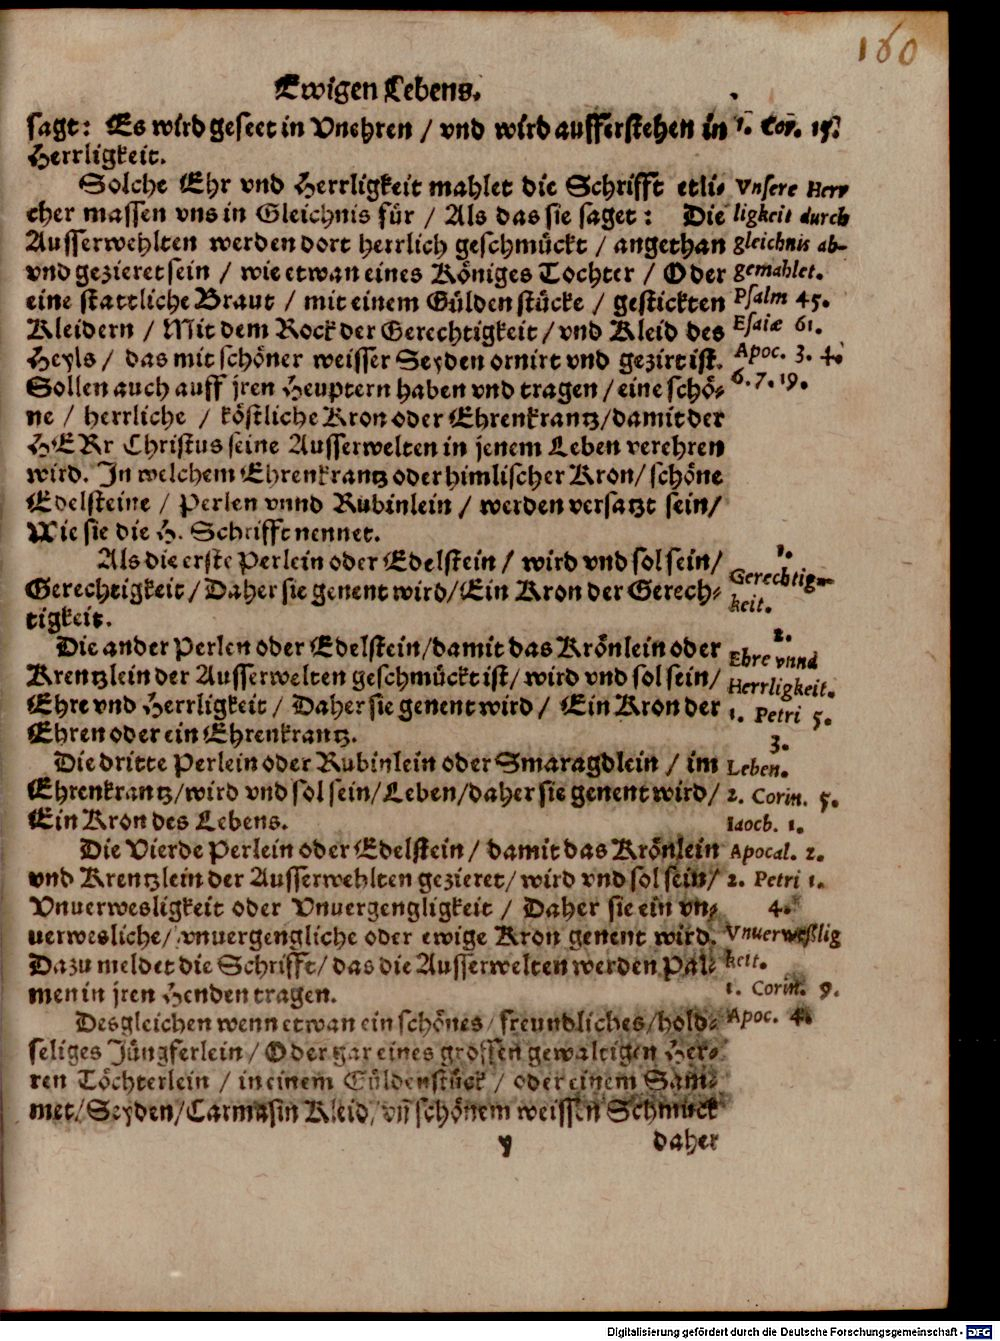 160
Ewigen Lebens.
sagt: Es wird geseet in Vnehren / vnd wird aufferstehen in
Herrligkeit.
Solche Ehr vnd Herrligkeit mahlet die Schrifft etli-
cher massen vns in Gleichnis für / Als das sie saget: Die
Ausserwehlten werden dort herrlich geschmückt / angethan
vnd gezieret sein / wie etwan eines Königes Tochter / Oder
eine stattliche Braut / mit einem Güldenstücke / gestickten
Kleidern / Mit dem Rock der Gerechtigkeit / vnd Kleid des
Heyls / das mit schöner weisser Seyden ornirt vnd gezirt ist.
Sollen auch auff jren Heuptern haben vnd tragen / eine schö-
ne / herrliche / köstliche Kron oder Ehrenkrantz / damit der
HERr Christus seine Ausserwelten in jenem Leben verehren
wird. In welchem Ehrenkrantz oder himlischer Kron / schöne
Edelsteine / Perlen vnnd Rubinlein / werden versatzt sein /
Wie sie die H. Schrifft nennet.
Als die erste Perlein oder Edelstein / wird vnd sol sein /
Gerechtigkeit / Daher sie genent wird / Ein Kron der Gerech-
tigkeit.
Die ander Perlen oder Edelstein / damit das Krönlein oder
Krentzlein der Ausserwelten geschmückt ist / wird vnd sol sein /
Ehre vnd Herrligkeit / Daher sie genent wird / Ein Kron der
Ehren oder ein Ehrenkrantz.
Die dritte Perlein oder Rubinlein oder Smaragdlein / im
Ehrenkrantz / wird vnd sol sein / Leben / daher sie genent wird /
Ein Kron des Lebens.
Die Vierde Perlein oder Edelstein / damit das Krönlein
vnd Krentzlein der Ausserwehlten gezieret / wird vnd sol sein /
Vnuerwesligkeit oder Vnuergengligkeit / Daher sie ein vn-
uerwesliche / vnuergengliche oder ewige Kron genent wird.
Dazu meldet die Schrifft / das die Ausserwelten werden Pal-
men in jren Henden tragen.
Desgleichen wenn etwan ein schönes / freundliches / hold-
seliges Jüngferlein / Oder gar eines grossen gewaltigen Her-
ren Töchterlein / in einem Güldenstück / oder einem Sam-
met / Seyden / Carmasin Kleid / vñ schönem weissen Schmuck
y
daher
1. Cor. 15.
Vnsere Herr
ligkeit durch
gleichnis ab-
gemahlet.
Psalm 45.
Esaiæ 61.
Apoc. 3. 4.
6. 7. 19.
1.
Gerechtig-
keit.
2.
Ehre vnnd
Herrligkeit.
1. Petri 5.
3.
Leben.
2. Corin. 5.
Iaocb. 1.
Apocal. 2.
2. Petri 1.
4.
Vnuerweslig
keit.
1. Corin. 9.
Apoc. 4.
Digitalisierung gefördert durch die Deutsche Forschungsgemeinschaft - DFG